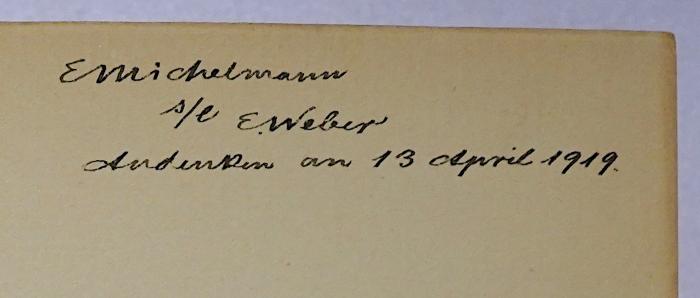 E Michelmann
s/l E. Weber
Andenken an 13 April 1919.